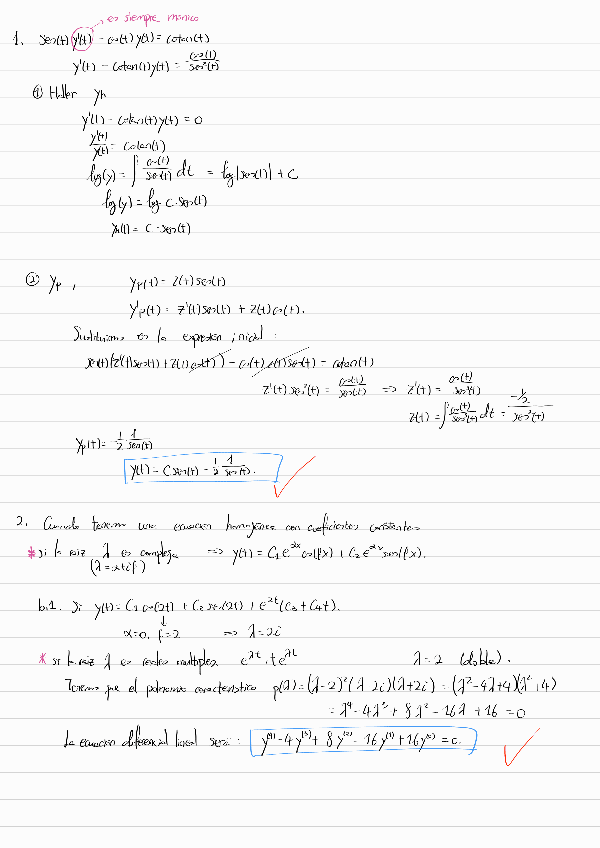 es siempre mónico
1. sen(t) y'(t) - cos(t) y(t) = cotan(t)
y'(t) - cotan(t) y(t) = cos(t)/sen²(t)
① Hallar yh
y'(t) - cotan(t) y(t) = 0
y'(t)/y(t) = cotan(t)
log(y) = ∫ cos(t)/sen(t) dt = log|sen(t)| + C
log(y) = log C · sen(t)
yh(t) = C · sen(t)
② yp, yp(t) = z(t) sen(t)
y'p(t) = z'(t) sen(t) + z(t) cos(t).
Sustituimos en la expresión inicial:
sen(t)(z'(t) sen(t) + z(t) cos(t)) - cos(t) z(t) sen(t) = cotan(t)
z'(t) sen²(t) = cos(t)/sen(t) ⟹ z'(t) = cos(t)/sen³(t)
z(t) = ∫ cos(t)/sen³(t) dt = -1/2/sen²(t)
yp(t) = -1/2 1/sen(t)
y(t) = C sen(t) - 1/2 1/sen(t).
2. Cuando tenemos una ecuación homogénea con coeficientes constantes
* si la raíz λ es compleja ⟹ y(t) = C₁ e^αx cos(βx) + C₂ e^αx sen(βx).
(λ = α ± iβ)
b.1. Si y(t) = C₁ cos(2t) + C₂ sen(2t) + e^2t (C₃ + C₄t).
↓
α=0, β=2 ⟹ λ = 2i
* si la raíz λ es real múltiple e^λt, te^λt λ = 2 (doble).
Tenemos que el polinomio característico p(λ) = (λ-2)²(λ-2i)(λ+2i) = (λ²-4λ+4)(λ²+4)
= λ⁴ - 4λ³ + 8λ² - 16λ + 16 = 0
La ecuación diferencial lineal será: y⁽⁴⁾ - 4y⁽³⁾ + 8y⁽²⁾ - 16y⁽¹⁾ + 16y⁽⁰⁾ = 0.